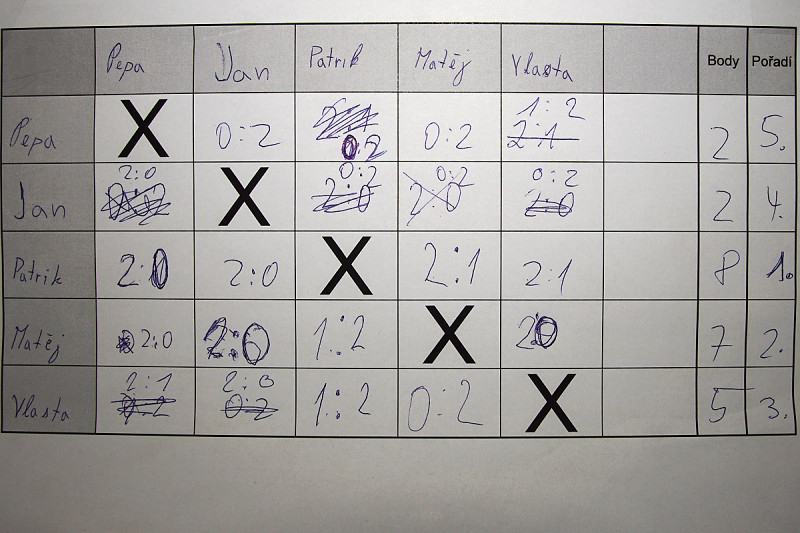 Pepa Jan Patrik Matěj Vlasta Body Pořadí
Pepa X 0:2 0:2 0:2 1:2 2:1 2 5.
Jan 2:0 X 0:2 2:0 0:2 2:0 0:2 2:0 2 4.
Patrik 2:0 2:0 X 2:1 2:1 8 1.
Matěj 2:0 2:0 1:2 X 20 7 2.
Vlasta 2:1 2:0 0:2 1:2 0:2 X 5 3.